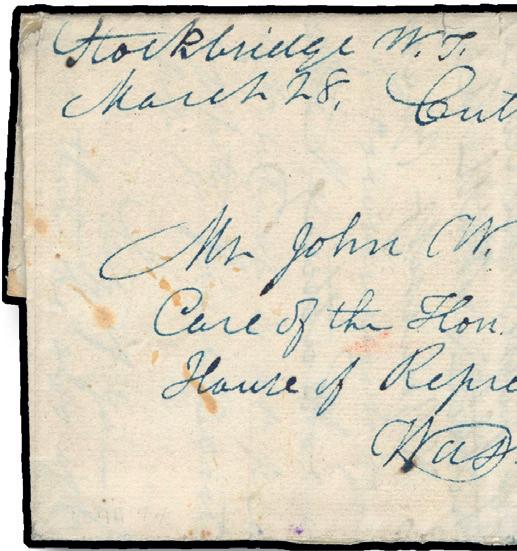 Stockbridge W.T.
March 28. Cutt
Mr John W.
Care of the Hon.
House of Repre
Was